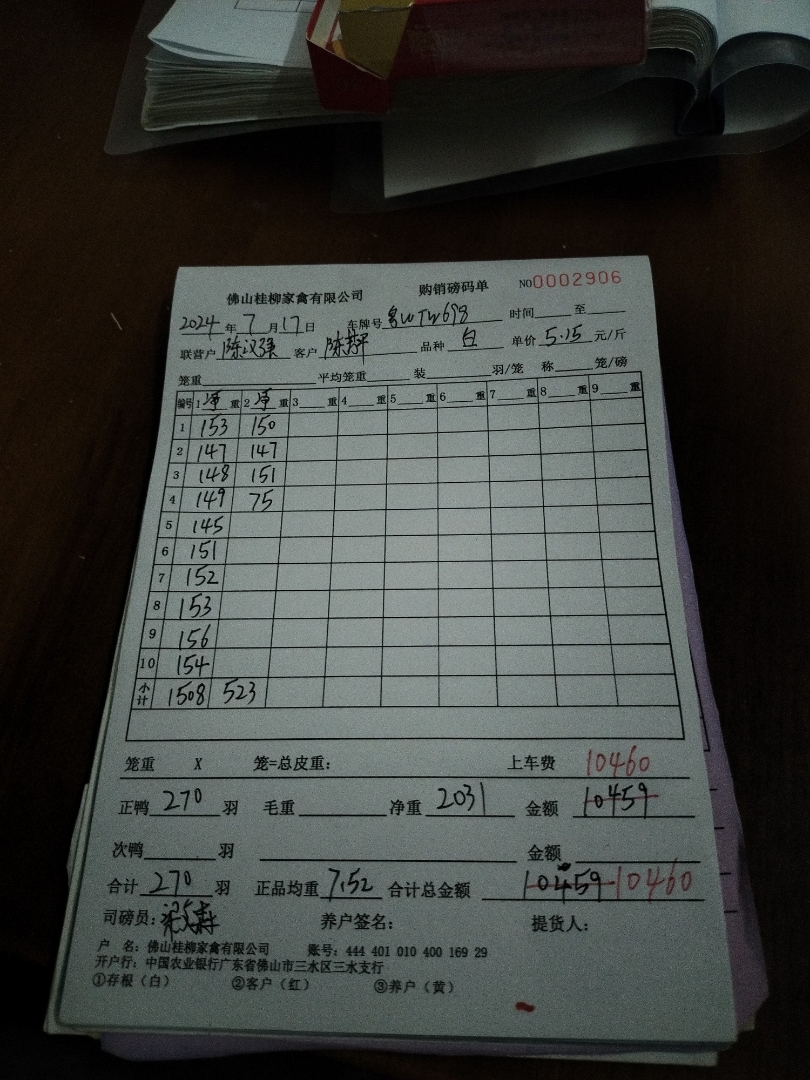 佛山桂柳家禽有限公司 购销磅码单 NO0002906
2024年7月17日 车牌号 粤WTW698 时间 至
联营户 陈汉强 客户 品种 白 单价 5.15 元/斤
笼重 平均笼重 装 羽/笼 称 笼/磅
编号 1净重 2净重 3 重 4 重 5 重 6 重 7 重 8 重 9 重
1 153 150
2 147 147
3 148 151
4 149 75
5 145
6 151
7 152
8 153
9 156
10 154
小计 1508 523
笼重 X 笼=总皮重: 上车费 10460
正鸭 270 羽 毛重 净重 2031 金额 10459
次鸭 羽 金额
合计 270 羽 正品均重 7.52 合计总金额 10459 10460
司磅员: 养户签名: 提货人:
户 名: 佛山桂柳家禽有限公司 账号: 444 401 010 400 169 29
开户行: 中国农业银行广东省佛山市三水区三水支行
①存根(白) ②客户(红) ③养户(黄)